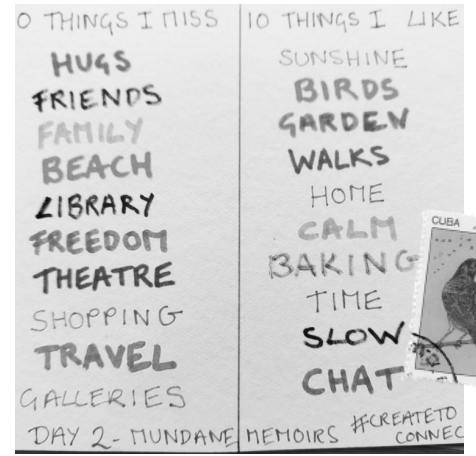 0 THINGS I MISS
HUGS
FRIENDS
FAMILY
BEACH
LIBRARY
FREEDOM
THEATRE
SHOPPING
TRAVEL
GALLERIES
10 THINGS I LIKE
SUNSHINE
BIRDS
GARDEN
WALKS
HOME
CALM
BAKING
TIME
SLOW
CHAT
CUBA
DAY 2 - MUNDANE MEMOIRS #CREATETO
CONNEC